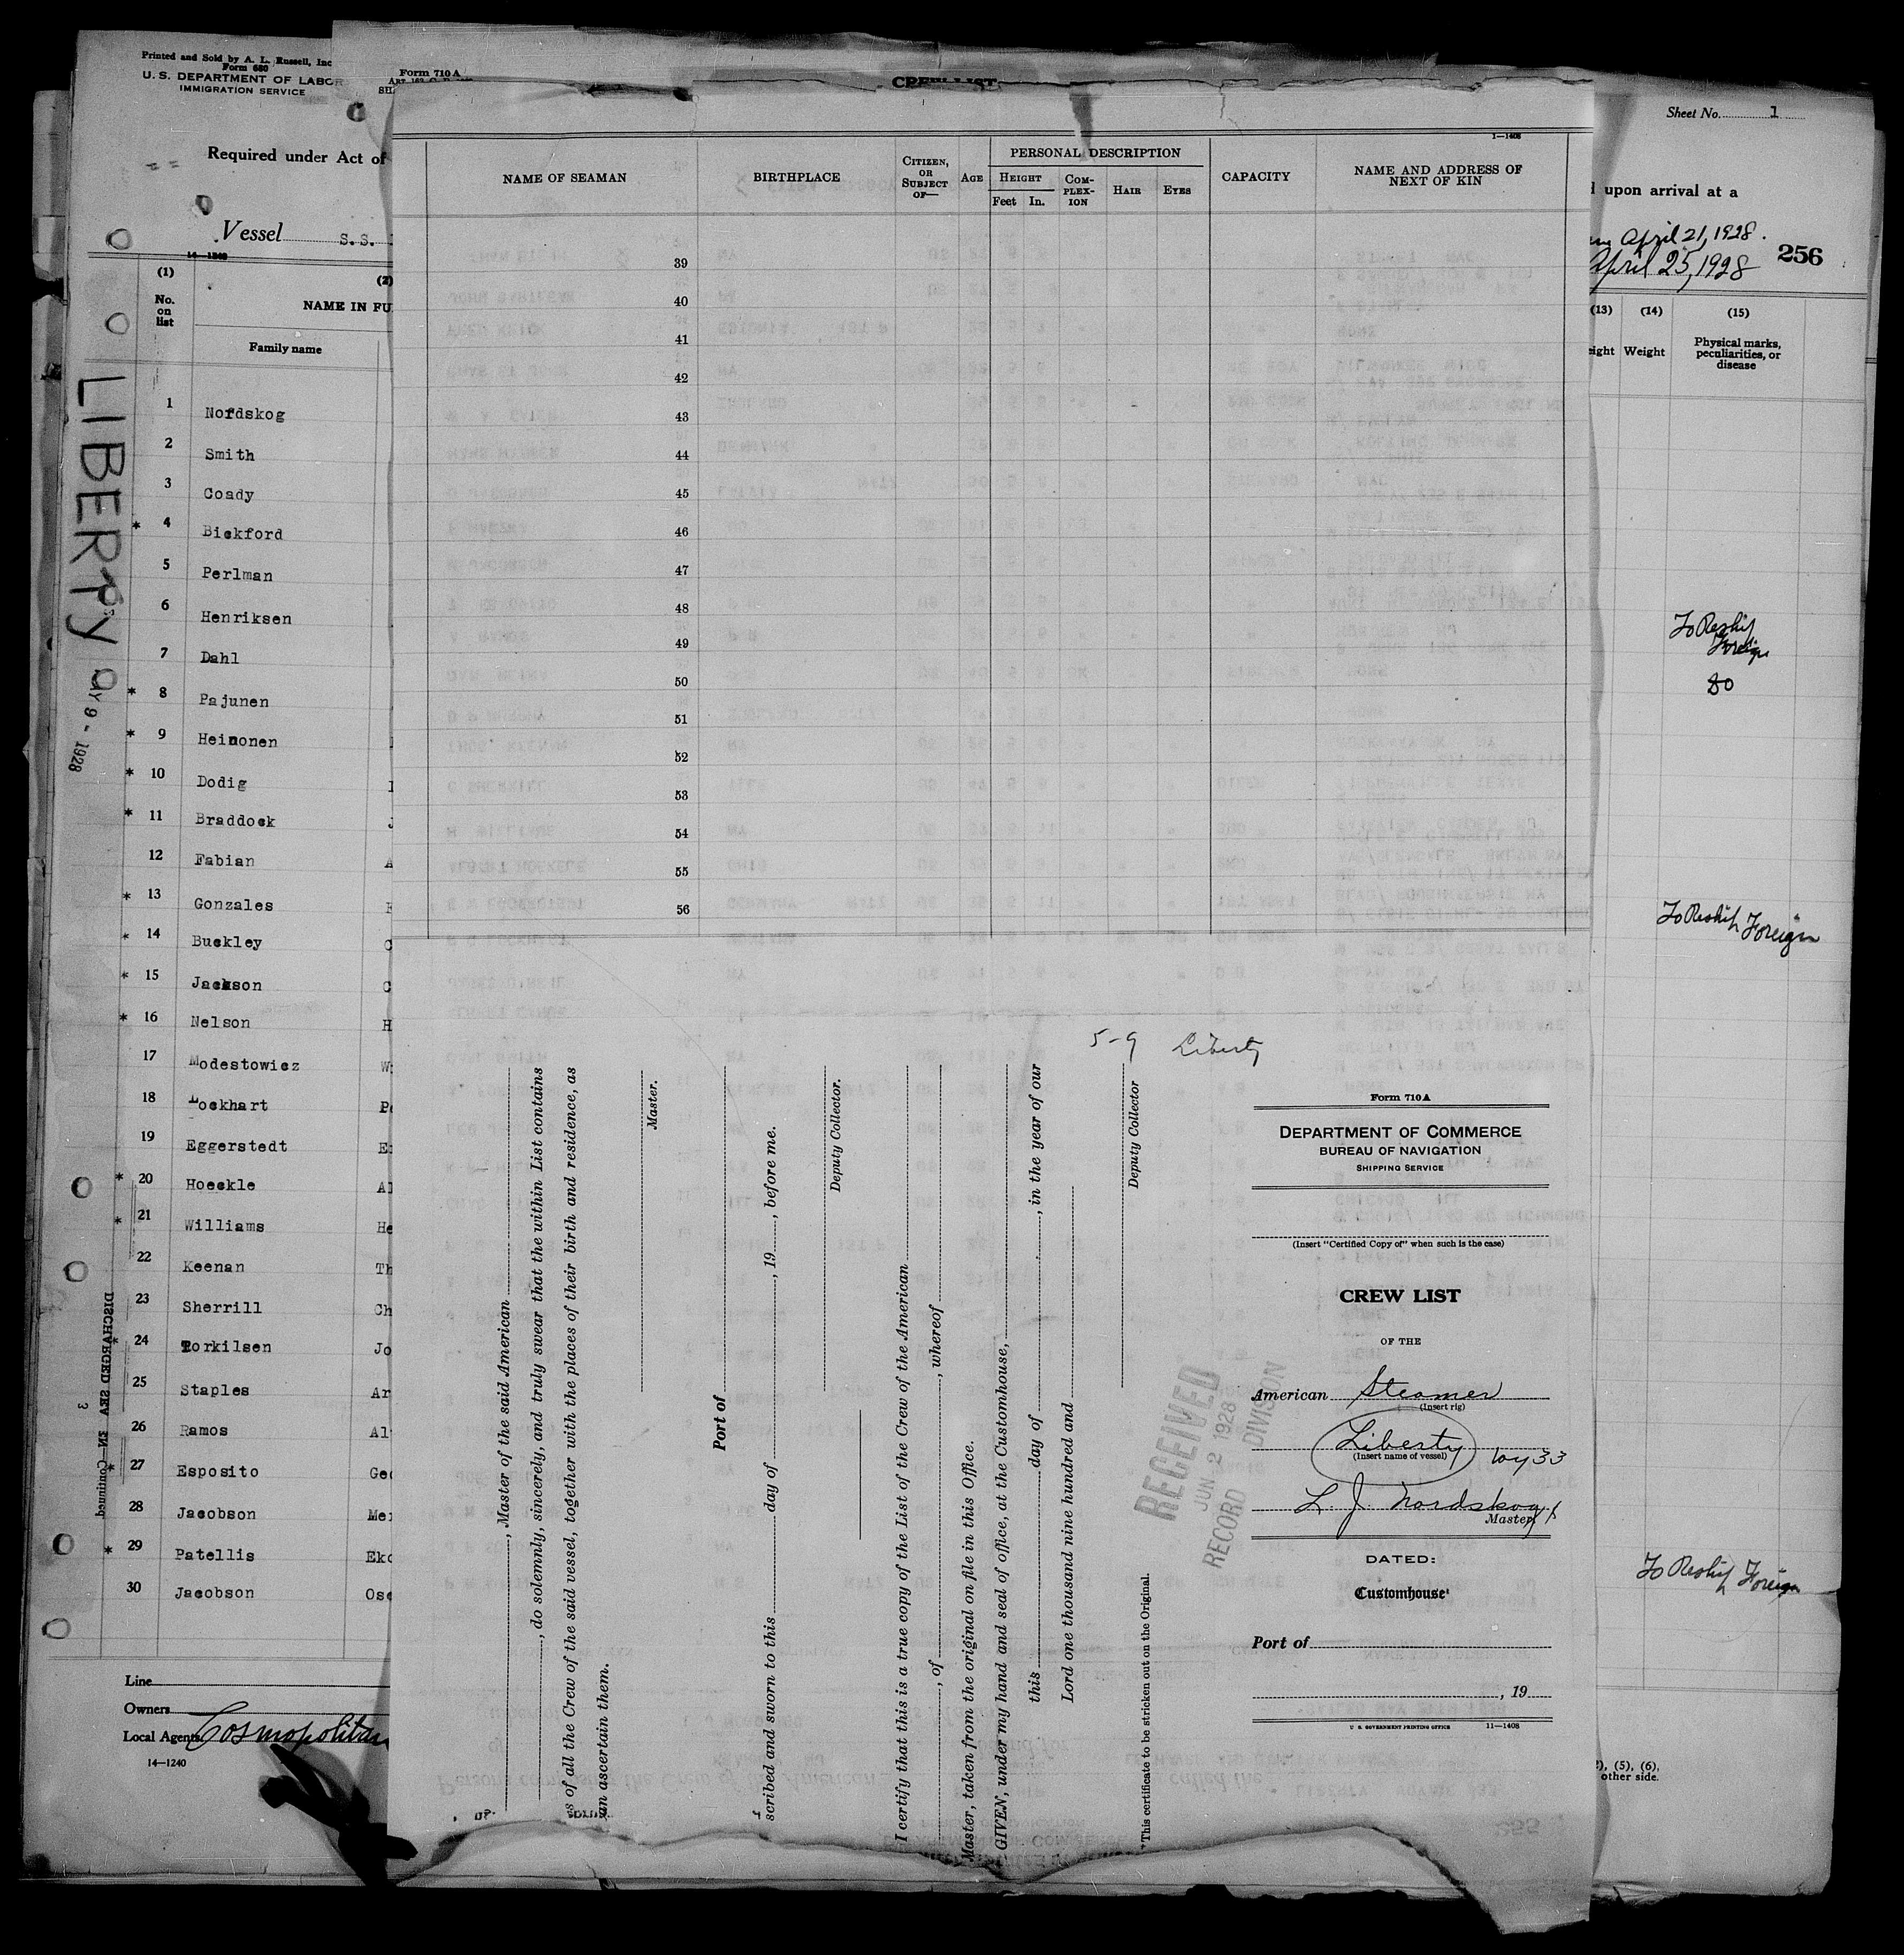 Printed and Sold by A. L. Russell, Inc
Form 680
U. S. DEPARTMENT OF LABOR
IMMIGRATION SERVICE
Required under Act of
Vessel S.S.
14—1240
(1)
No.
on
list
(2)
NAME IN FU
Family name
LIBERTY
9 - 1928
1 Nordskog
2 Smith
3 Coady
* 4 Bickford
5 Perlman
6 Henriksen
7 Dahl
* 8 Pajunen
* 9 Heinonen
* 10 Dodig
* 11 Braddock
12 Fabian A
* 13 Gonzales
* 14 Buckley C
* 15 Jackson C
* 16 Nelson H
17 Modestowicz
18 Lockhart
19 Eggerstedt
* 20 Hoeckle Al
* 21 Williams He
22 Keenan Th
23 Sherrill Ch
* 24 Torkilsen Jo
25 Staples Ar
26 Ramos Al
* 27 Esposito Geo
28 Jacobson
* 29 Patellis Eko
30 Jacobson
Line
Owners
Local Agents Cosmopolitan
14—1240
Form 710A
CREW LIST
1—1408
NAME OF SEAMAN
BIRTHPLACE
CITIZEN, OR SUBJECT OF—
AGE
PERSONAL DESCRIPTION
HEIGHT
Feet In.
COMPLEX-
ION
HAIR
EYES
CAPACITY
NAME AND ADDRESS OF
NEXT OF KIN
39
40
41
42
43
44
45
46
47
48
49
50
51
52
53
54
55
56
5-9 Liberty
, Master of the said American
, do solemnly, sincerely, and truly swear that the within List contains
s of all the Crew of the said vessel, together with the places of their birth and residence, as
an ascertain them.
Master.
Port of
scribed and sworn to this day of , 19 , before me.
Deputy Collector.
I certify that this is a true copy of the List of the Crew of the American
, of , whereof
Master, taken from the original on file in this Office.
GIVEN, under my hand and seal of office, at the Customhouse,
this day of , in the year of our
Lord one thousand nine hundred and
Deputy Collector
*This certificate to be stricken out on the Original.
RECEIVED
JUN 2 1928
RECORD DIVISION
Form 710A
DEPARTMENT OF COMMERCE
BUREAU OF NAVIGATION
SHIPPING SERVICE
(Insert "Certified Copy of" when such is the case)
CREW LIST
OF THE
American Steamer
(Insert rig)
Liberty
(Insert name of vessel)
L. J. Nordskog
Master
DATED:
Customhouse
Port of
, 19
U. S. GOVERNMENT PRINTING OFFICE 11—1408
Sheet No. 1
upon arrival at a
April 21, 1928.
April 25, 1928
256
(13) (14) (15)
eight Weight
Physical marks,
peculiarities, or
disease
To Reship
Foreign
To Reship Foreign
To Reship Foreign
), (5), (6),
other side.